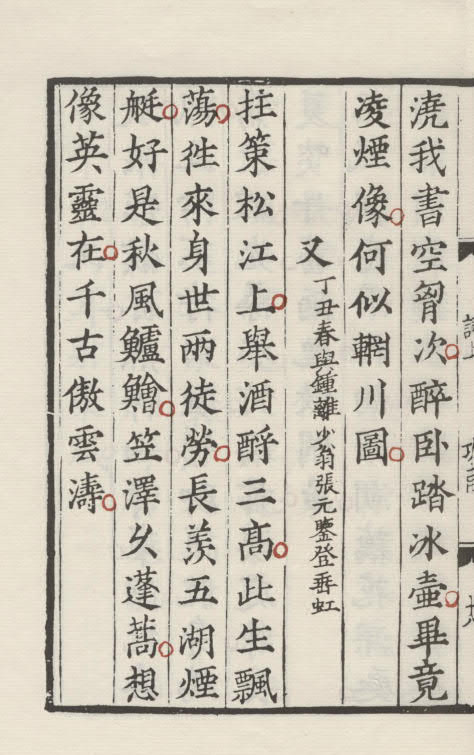 澆我書空胷次醉卧踏冰壺畢竟
凌煙像何似輞川圖
又丁丑春與鍾離少翁張元鑒登垂虹
拄策松江上舉酒酹三高此生飄
蕩徃來身世兩徒勞長羨五湖煙
艇好是秋風鱸鱠笠澤久蓬蒿想
像英靈在千古傲雲濤